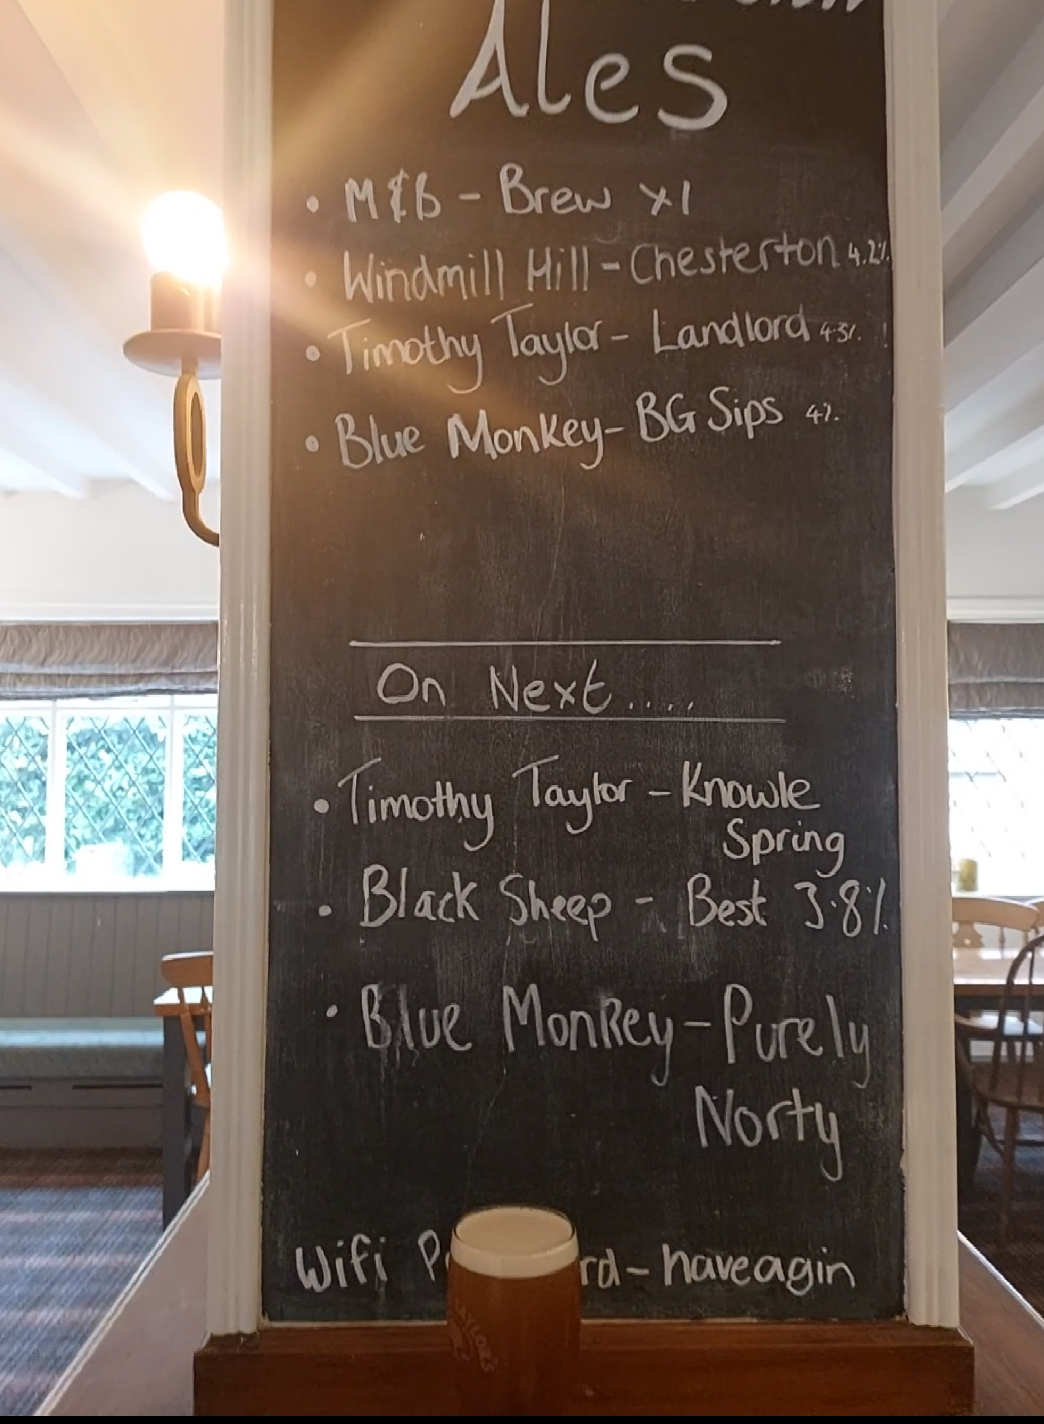 Ales
• M&B - Brew XI
• Windmill Hill - Chesterton 4.2%
• Timothy Taylor - Landlord 4.3%
• Blue Monkey - BG Sips 4%
On Next....
• Timothy Taylor - Knowle
Spring
• Black Sheep - Best 3.8%
• Blue Monkey - Purely
Norty
Wifi P rd - haveagin
TAYLOR'S